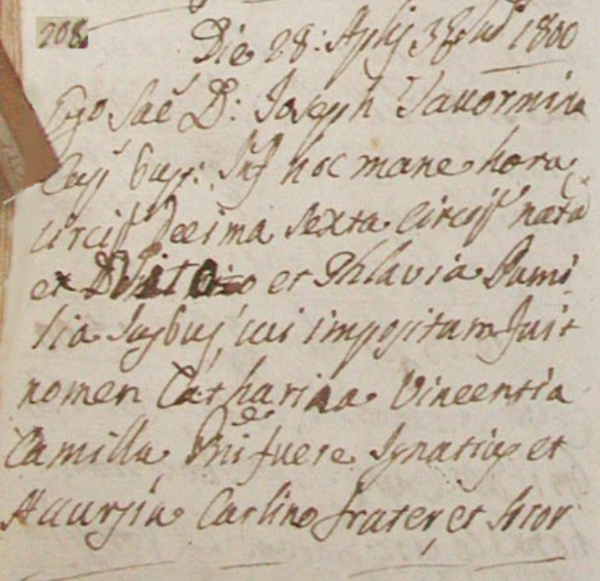 208.
Die 28: Aplis 3æ Ind 1800
Ego Sac D: Joseph Tavormina
Capp Bapt: Inf hoc mane hora
circit Decima sexta circit nata
ex D Vito et Phlavia Pami
lia Jugbus, cui impositum fuit
nomen Catharina Vincentia
Camilla Pni fuere Ignatius et
Naurzia Carlino frater, et soror